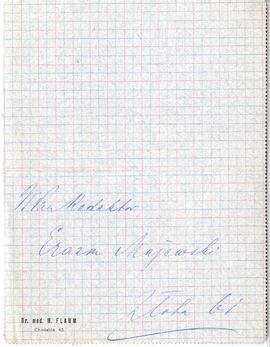 WPan Redaktor
Erazm Majewski
Złota 61
Dr. med. M. FLAUM
Chmielna 45